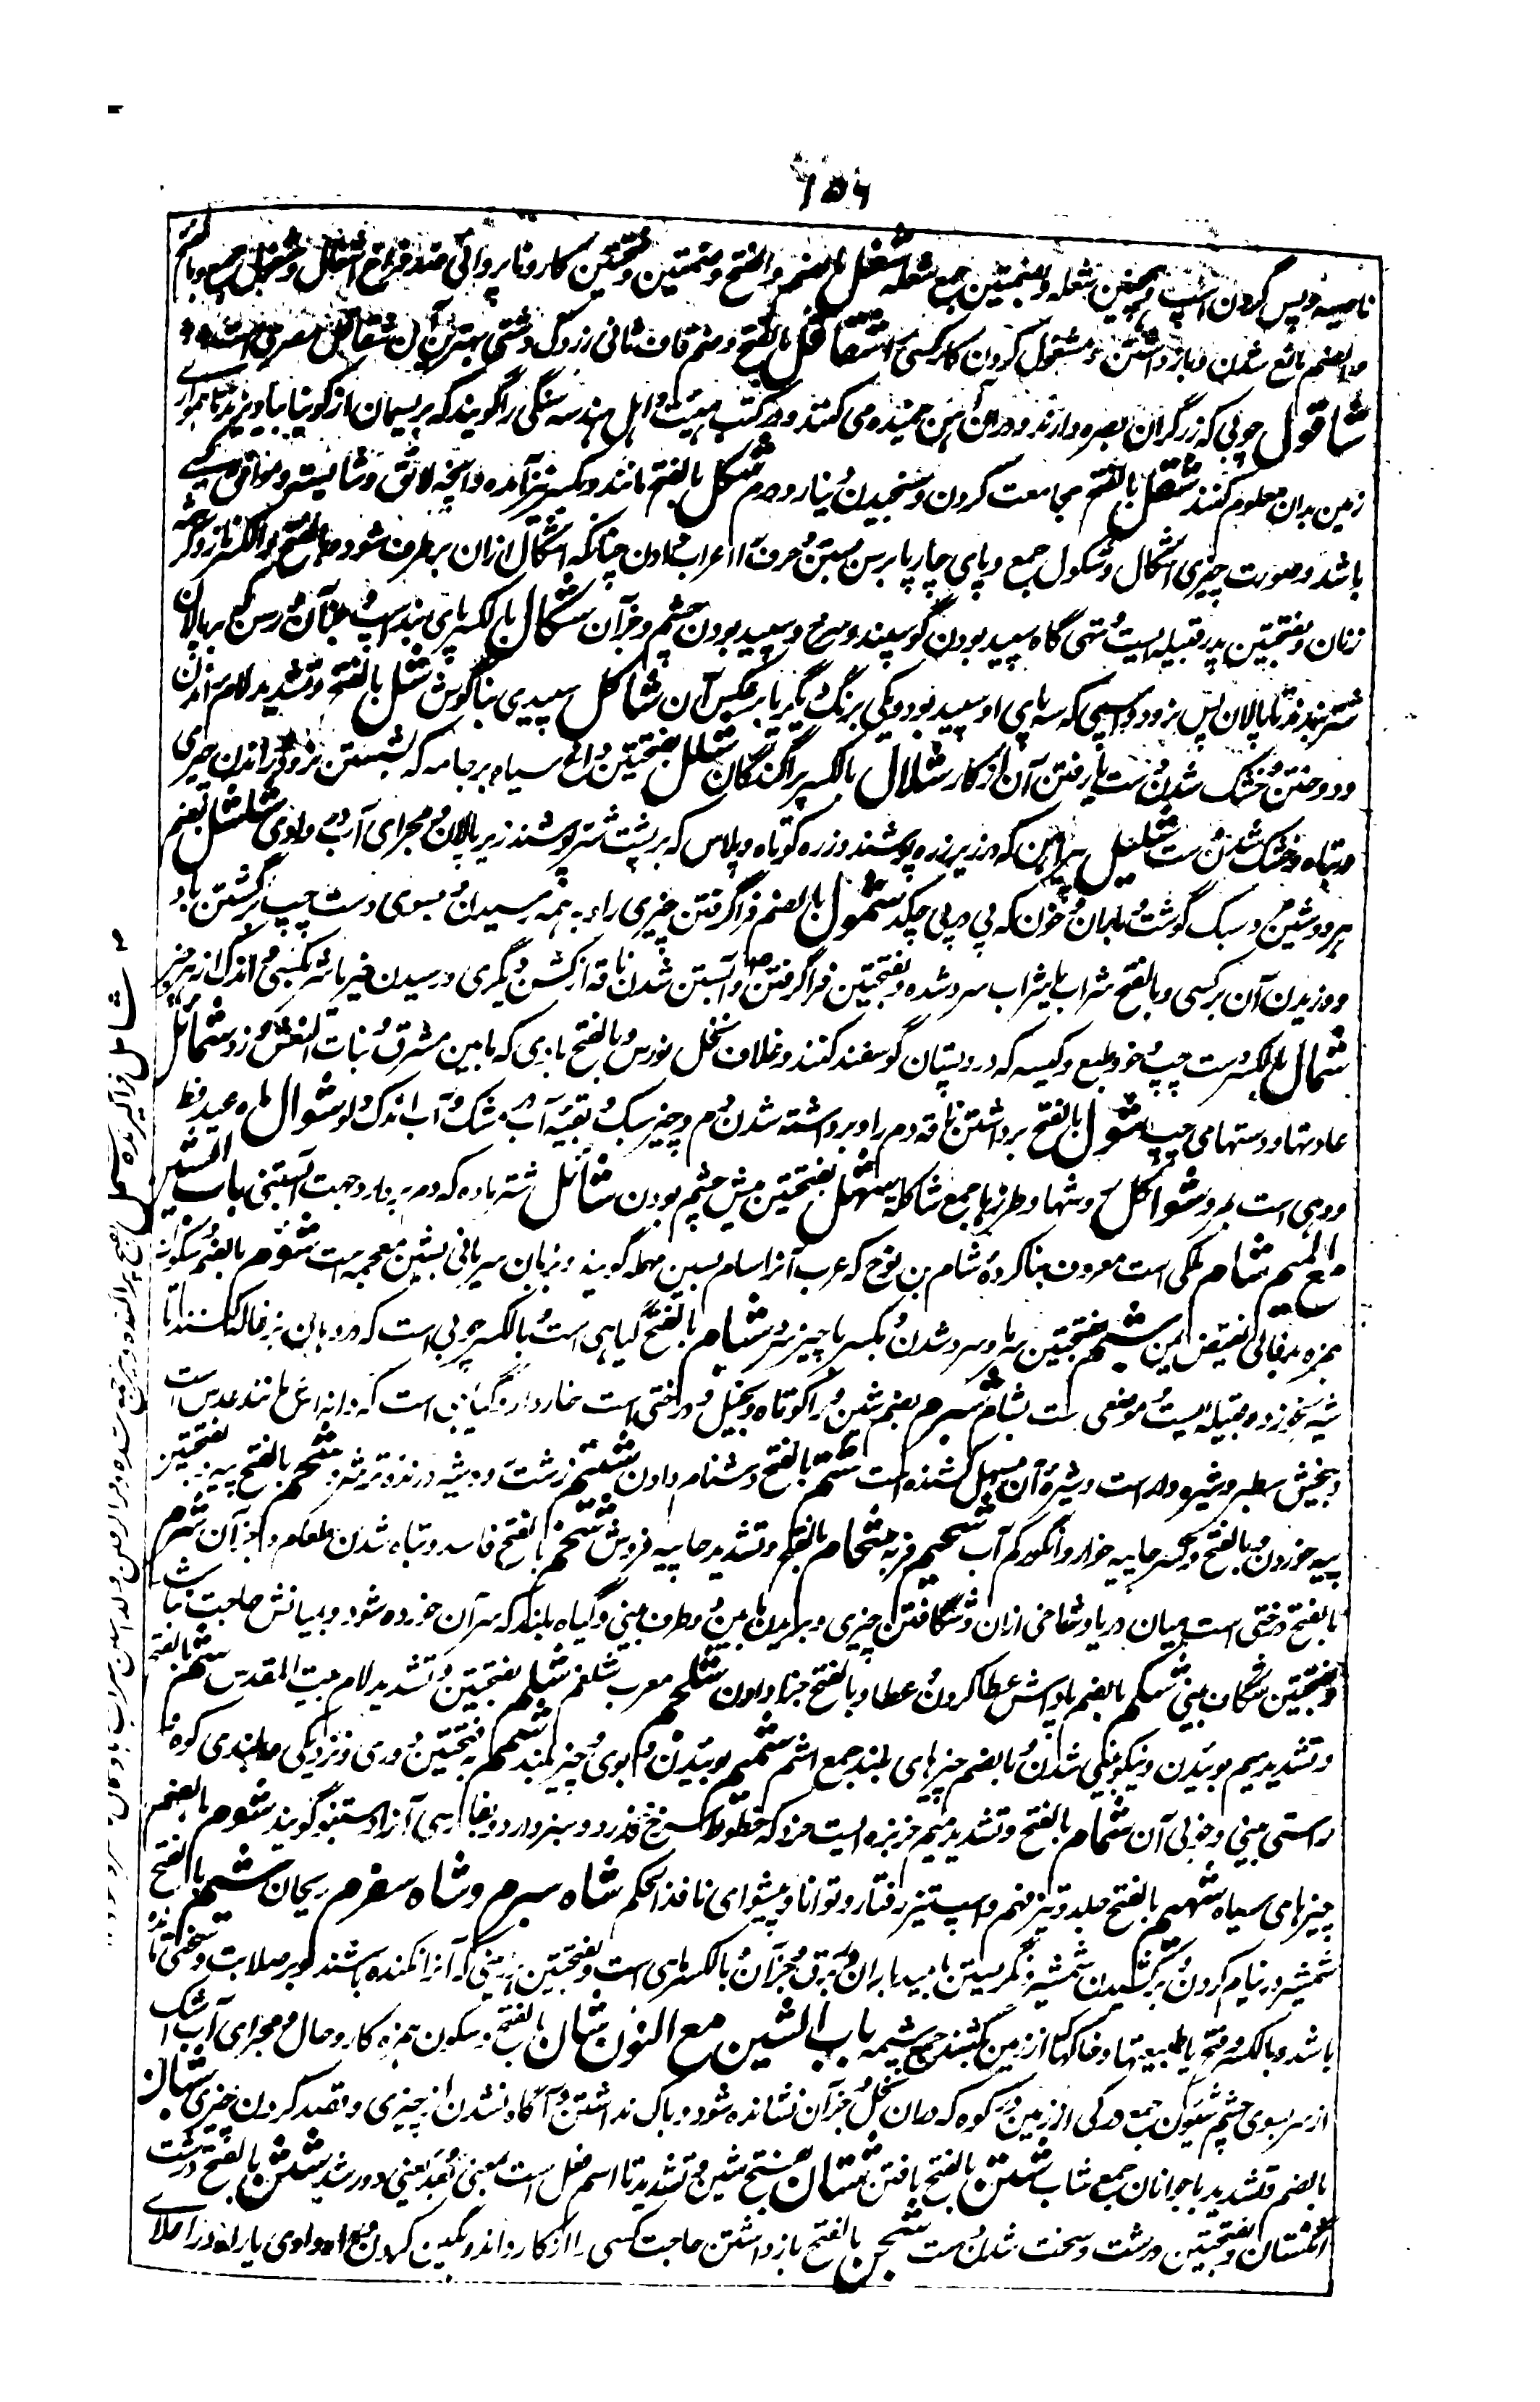 ۱۵۶
ناصیه و پس گردن اسپ و همچنین شعله و بضمتین جمع شعله شغل بالضم والفتح و بضمتین و بفتحتین کار و ناپروائی ضد فراغ اشغال و شغول جمع و بالفتح
و بالضم مانع شدن و بازداشتن و مشغول کردن کار کسی را شقاقل بالفتح و ضم قاف ثانی زردک دشتی بهترین آن شقاقل مصری است
شاقول چوبی که زرگران بصره دارند و در کتب هیئت و اهل هندسه سنگی را گویند که بریسمان از گونیا بیاویزند تا همواری
زمین بدان معلوم کنند شقل بالفتح مجامعت کردن و سنجیدن دینار و درم شکل بالفتح مانند و بکسر نیز آمده و آنچه لائق و شایسته و موافق کسی
باشد و صورت چیزی اشکال و شکول جمع و پای چارپا برسن بستن و حرف را اعراب دادن چنانکه اشکال ازان برطرف شود و بالفتح و الکسر ناز و کرشمه
زنان و بفتحتین پدر قبیله ایست و تهی گاه سپید بودن گوسپند و سرخ و سپید بودن چشم و جز آن شکال بالکسر پای بند اسپ و جز آن و رسن که بپالان
شتر بندند تا پالان پس نرود و اسپی که سه پای او سپید بود و یکی برنگ دیگر یا برعکس آن شاکل سپیدی بناگوش شل بالفتح و تشدید لام راندن
و دوختن و خشک شدن دست یا رفتن آن از کار شلال بالکسر پراگندگان شلل بفتحتین داغ سیاه بر جامه که بشستن نرود و راندن چیزی
و تباه و خشک شدن دست شلیل پیراهن که در زیر زره پوشند و زره کوتاه و پلاس که بر پشت شتر پوشند زیر پالان و مجرای آب در وادی شلشل بضم
هر دو شین مرد سبک گوشت و باران و خون که پی در پی چکد شمول بالضم فراگرفتن چیزی را و بهمه رسیدن و بسوی دست چپ برگشتن باد
و وزیدن آن بر کسی و بالفتح شراب یا شراب سرد شده و بفتحتین فراگرفتن و آبستن شدن ناقه از گشن دیگری و رسیدن خیر یا شر بکسی و اندک از هر چیز
شمال بالکسر دست چپ و خو و طبع و کیسه که در پستان گوسفند کنند و غلاف نخل نورس و بالفتح بادی که مابین مشرق و بنات النعش وزد شمائل
عادتها و دستهای چپ شول بالفتح برداشتن ناقه دم را و برداشته شدن دم و چیز سبک و بقیه آب در مشک و آب اندک در دلو شوال ماه عید فطر
و دهی است بمرو شواکل روشها و طرزها جمع شاکله شهل بفتحتین میش چشم بودن شائل شتر ماده که دم بردارد جهت آبستنی باب الشین
مع المیم شام ملکی است معروف بنا کرده شام بن نوح که عرب آنرا سام بسین مهمله گویند و بزبان سریانی بشین معجمه است شؤم بالضم و سکون
همزه بدفالی نقیض یمن شبم بفتحتین سرما و سرد شدن و بکسر با چیز سرد شبام بالفتح گیاهی است و بالکسر چوبی است که در دهان بزغاله کنند تا
شیر نخورد و قبیله ایست و موضعی ست بشام شبرم بضم شین و را کوتاه و بخیل و درختی است خاردار و گیاهی است که دانه اش مانند عدس است
و بیخش سطبر و شیره دار است و شیره آن مسهل کشنده است شتم بالفتح دشنام دادن شتیم زشت و بیشه درنده ترشرو شحم بالفتح پیه بفتحتین
پیه خوردن و بالفتح و کسر حا پیه خوار و انگور کم آب شحیم فربه شحام بالفتح و تشدید حا پیه فروش شخم بالفتح فاسد و تباه شدن طعام و جز آن شرم
بالفتح درختی است میان دریا و شاخی ازان و شگافتن چیزی و بریدن مابین دو طرف بینی و گیاه بلند که سر آن خورده شود و بمیانش حاجت نباشد
و بفتحتین شگاف بینی شکم بالضم پاداش عطا کردن و عطا و بالفتح جزا دادن شلجم معرب شلغم شلم بفتحتین و تشدید لام بیت المقدس شم بالفتح
و تشدید میم بوئیدن و نیکو بینی شدن و بالضم چیزهای بلند جمع اشم شمیم بوئیدن و بوی و چیز بلند شمم بفتحتین دوری و نزدیکی و بلندی کوه
راستی بینی و خوبی آن شمام بالفتح و تشدید میم خربزه ایست خرد که خطوط سرخ و زرد و سبز دارد و بفارسی آنرا دستنبو گویند شوم بالضم
چیزهای سیاه شهیم بالفتح جلد و تیز فهم و اسپ تیز رفتار و توانا و پیشوای نافذ الحکم شاه سبرم و شاه سفرم ریحان شیم بالفتح
شمشیر در نیام کردن و برکشیدن شمشیر و نگریستن بامید باران در برق و جز آن و بالکسر ماهی است و بفتحتین زمینی که آنرا نکنده باشند و بر صلابت و سختی مانده
باشد و بالکسر و فتح یا طبیعتها و خاکها که از زمین کنند جمع شیمه باب الشین مع النون شان بالفتح و سکون همزه کار و حال و مجرای آب اشک
از سر بسوی چشم شئون جمع و رگی از زمین در کوه که دران نخل و جز آن نشانده شود و باک نداشتن و آگاه نشدن از چیزی و قصد کردن چیزی شبان
بالضم و تشدید با جوانان جمع شاب شتن بالفتح بافتن شتان بفتح شین و تشدید تا اسم فعل است بمعنی بعد یعنی دور شد شثن بالفتح درشت
انگشتان و بفتحتین درشت و سخت شدن دست شجن بالفتح بازداشتن حاجت کسی را از کار و اندوهگین کردن و راه وادی یا راه در اعلای